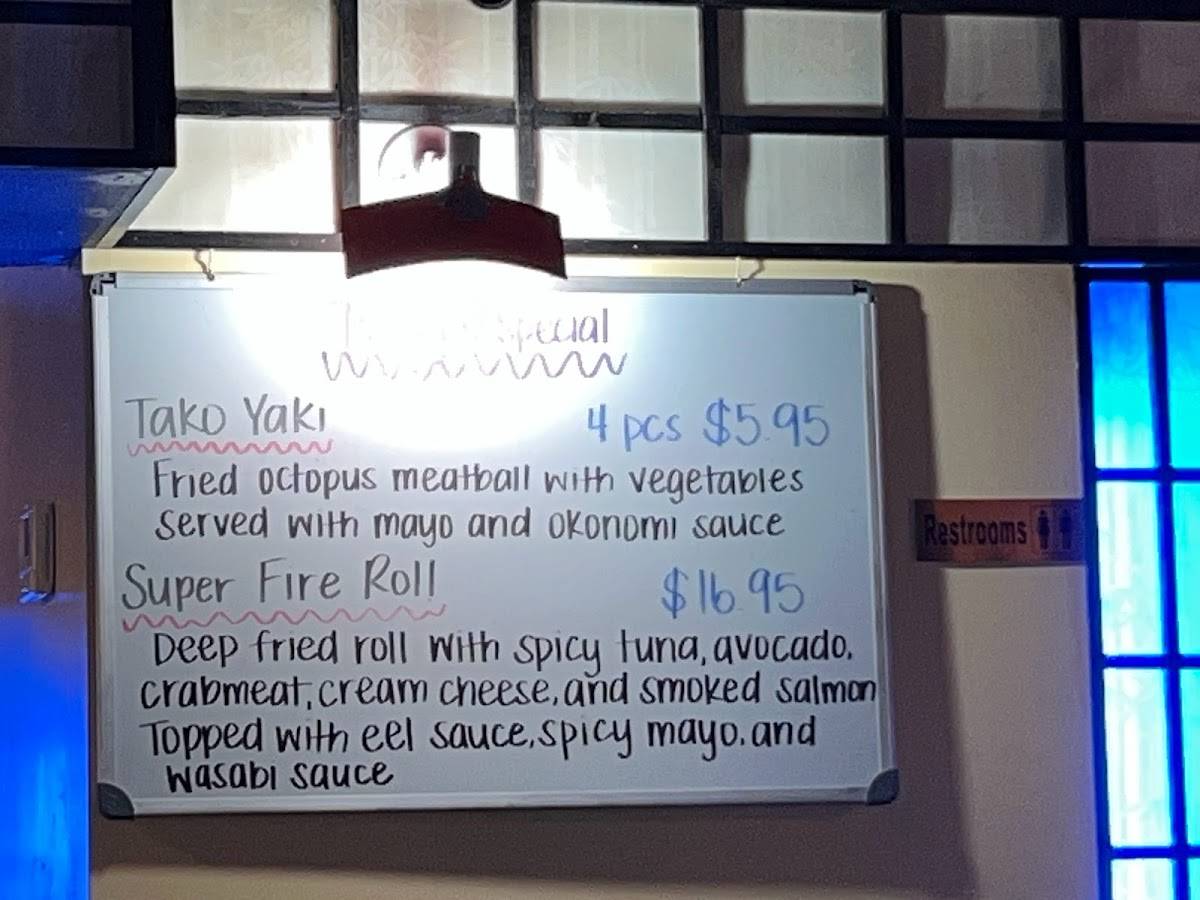 Special
Tako Yaki 4 pcs $5.95
Fried octopus meatball with vegetables
served with mayo and okonomi sauce
Super Fire Roll $16.95
Deep fried roll with spicy tuna, avocado,
crabmeat, cream cheese, and smoked salmon
Topped with eel sauce, spicy mayo, and
wasabi sauce
Restrooms